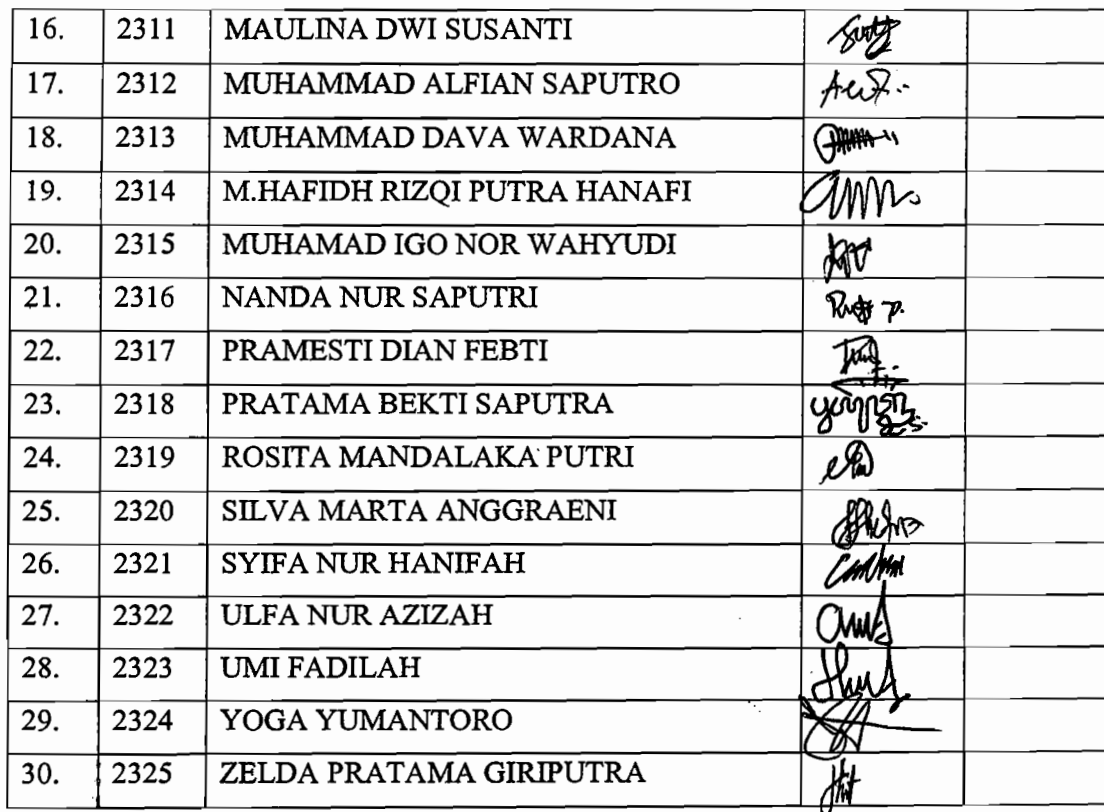 16. 2311 MAULINA DWI SUSANTI
17. 2312 MUHAMMAD ALFIAN SAPUTRO
18. 2313 MUHAMMAD DAVA WARDANA
19. 2314 M.HAFIDH RIZQI PUTRA HANAFI
20. 2315 MUHAMAD IGO NOR WAHYUDI
21. 2316 NANDA NUR SAPUTRI
22. 2317 PRAMESTI DIAN FEBTI
23. 2318 PRATAMA BEKTI SAPUTRA
24. 2319 ROSITA MANDALAKA PUTRI
25. 2320 SILVA MARTA ANGGRAENI
26. 2321 SYIFA NUR HANIFAH
27. 2322 ULFA NUR AZIZAH
28. 2323 UMI FADILAH
29. 2324 YOGA YUMANTORO
30. 2325 ZELDA PRATAMA GIRIPUTRA